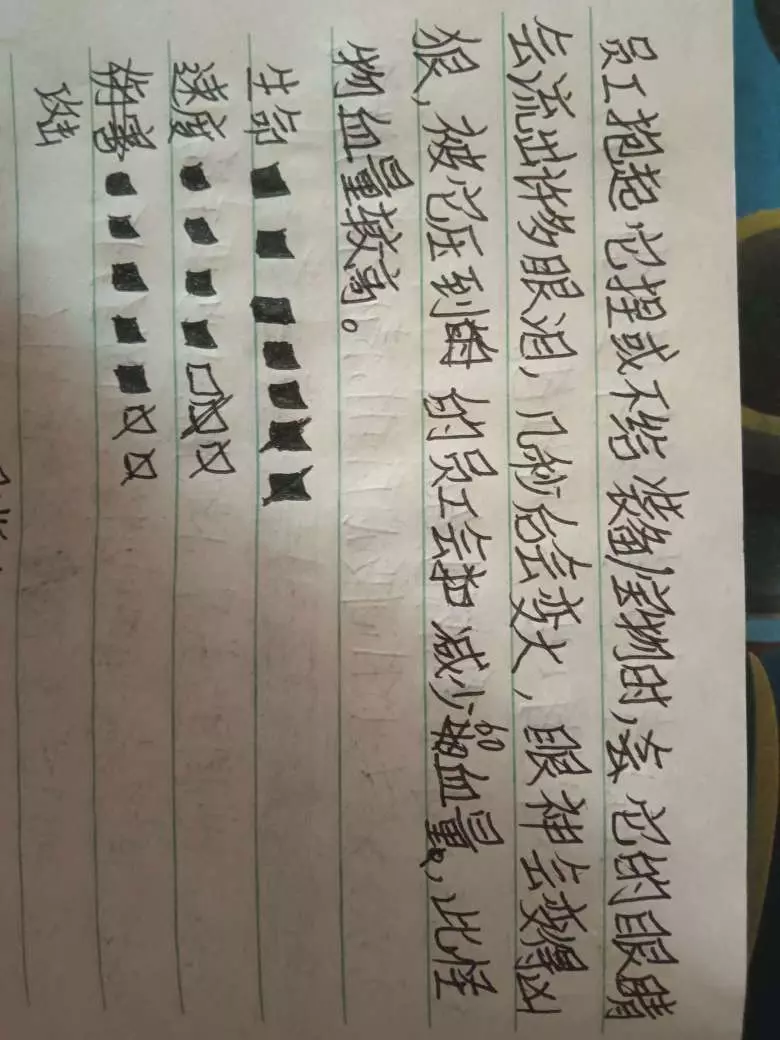 员工抱起它捏或不给装备/宝物时,会它的眼睛
会流出许多眼泪,几秒后会变大,眼神会变得凶
狠,被它压到的员工会减少60血量,此怪
物血量较高。
生命 ■ ■ ■ ■ ■ ■ ■
速度 ■ ■ ■ ■ □
伤害 ■ ■ ■ ■ ■
攻击